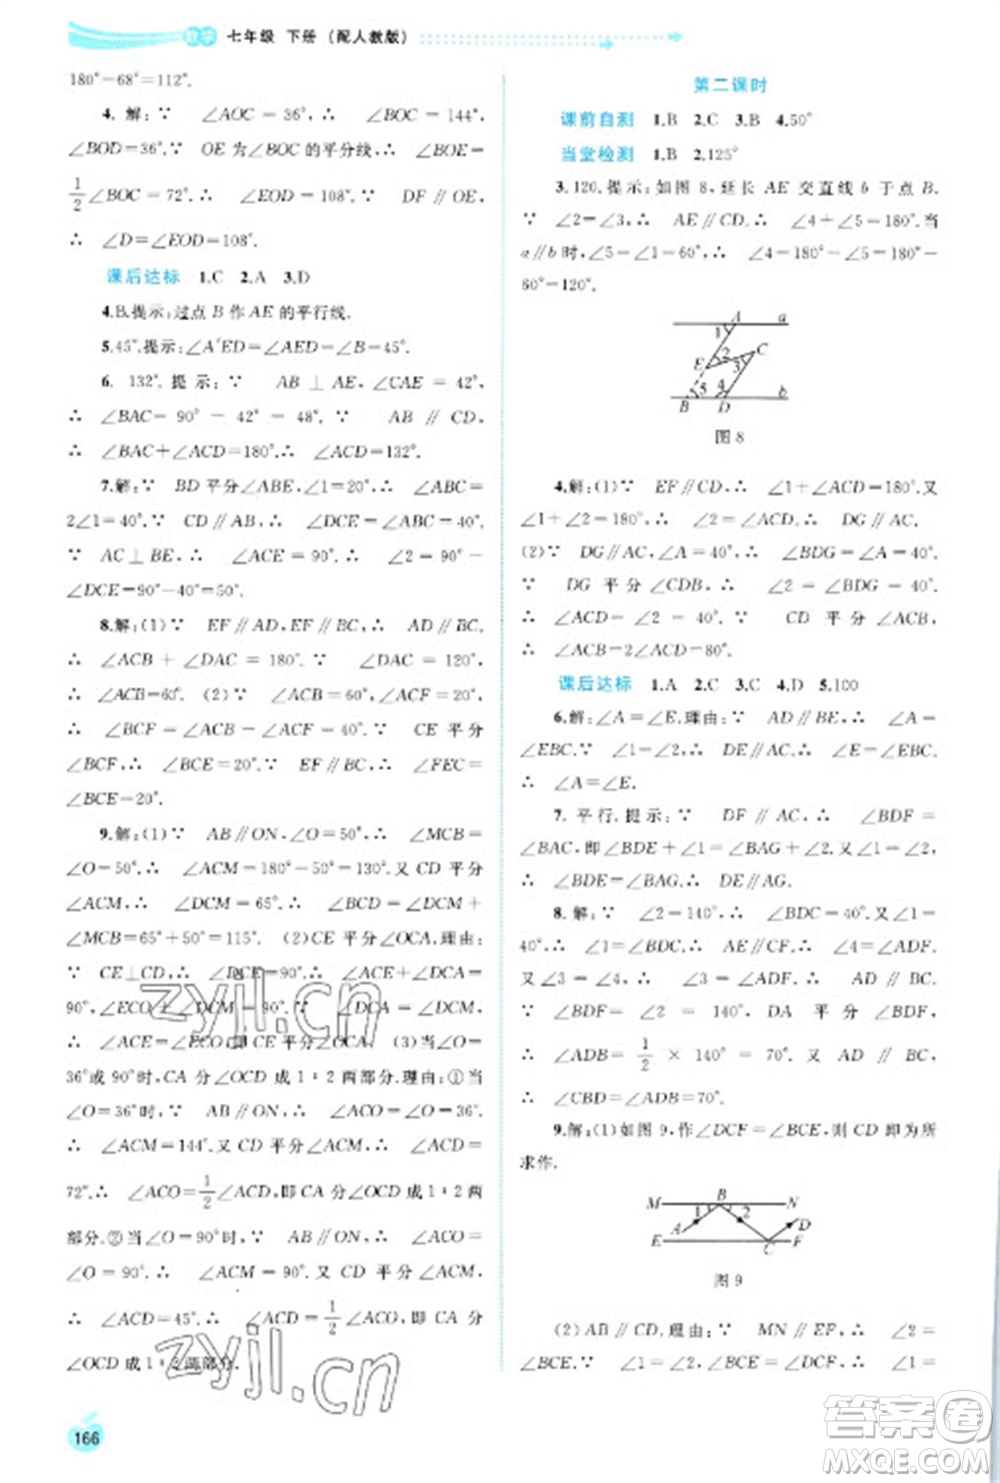 数学 七年级 下册 (配人教版)
180°-68°=112°.
4. 解:∵ ∠AOC=36°,∴ ∠BOC=144°,
∠BOD=36°.∵ OE为∠BOC的平分线,∴ ∠BOE=
1/2∠BOC=72°.∴ ∠EOD=108°.∵ DF∥OE,
∴ ∠D=∠EOD=108°.
课后达标 1.C 2.A 3.D
4.B.提示:过点 B 作 AE 的平行线.
5.45°.提示:∠A′ED=∠AED=∠B=45°.
6. 132°. 提示:∵ AB⊥AE,∠CAE=42°,
∴ ∠BAC=90°-42°=48°.∵ AB∥CD,
∴ ∠BAC+∠ACD=180°.∴ ∠ACD=132°.
7.解:∵ BD平分∠ABC,∠1=20°,∴ ∠ABC=
2∠1=40°.∵ CD∥AB,∴ ∠DCE=∠ABC=40°.
∵ AC⊥BE,∴ ∠ACE=90°.∴ ∠2=90°-
∠DCE=90°-40°=50°.
8.解:(1)∵ EF∥AD,EF∥BC,∴ AD∥BC.
∴ ∠ACB+∠DAC=180°.∵ ∠DAC=120°,
∴ ∠ACB=60°.(2)∵ ∠ACB=60°,∠ACF=20°,
∴ ∠BCF=∠ACB-∠ACF=40°.∵ CE 平分
∠BCF,∴ ∠BCE=20°.∵ EF∥BC,∴ ∠FEC=
∠BCE=20°.
9.解:(1)∵ AB∥ON,∠O=50°,∴ ∠MCB=
∠O=50°.∴ ∠ACM=180°-50°=130°.又 CD 平分
∠ACM,∴ ∠DCM=65°.∴ ∠BCD=∠DCM+
∠MCB=65°+50°=115°.(2)CE平分∠OCA.理由:
∵ CE⊥CD,∴ ∠DCE=90°.∴ ∠ACE+∠DCA=
90°,∠ECO+∠DCM=90°.∵ ∠DCA=∠DCM,
∴ ∠ACE=∠ECO,即CE平分∠OCA.(3)当∠O=
36°或90°时,CA 分∠OCD 成 1:2 两部分.理由:①当
∠O=36°时,∵ AB∥ON,∴ ∠ACO=∠O=36°.
∴ ∠ACM=144°.又 CD 平分∠ACM,∴ ∠ACD=
72°.∴ ∠ACO=1/2∠ACD,即 CA 分∠OCD 成 1:2 两
部分.②当∠O=90°时,∵ AB∥ON,∴ ∠ACO=
∠O=90°.∴ ∠ACM=90°.又 CD 平分∠ACM,
∴ ∠ACD=45°.∴ ∠ACD=1/2∠ACO,即 CA 分
∠OCD成1:2两部分.
166
第二课时
课前自测 1.B 2.C 3.B 4.50°
当堂检测 1.B 2.125°
3.120.提示:如图 8,延长 AE 交直线 b 于点 B.
∵ ∠2=∠3,∴ AE∥CD.∴ ∠4+∠5=180°.当
a∥b时,∠5=∠1=60°,∴ ∠4=180°-∠5=180°-
60°=120°.
A a
1
2 C
E 3
5 4
B D b
图 8
4.解:(1)∵ EF∥CD,∴ ∠1+∠ACD=180°.又
∠1+∠2=180°,∴ ∠2=∠ACD.∴ DG∥AC.
(2)∵ DG∥AC,∠A=40°,∴ ∠BDG=∠A=40°.
∵ DG 平分∠CDB,∴ ∠2=∠BDG=40°.
∴ ∠ACD=∠2=40°.∵ CD 平分∠ACB,
∴ ∠ACB=2∠ACD=80°.
课后达标 1.A 2.C 3.C 4.D 5.100
6.解:∠A=∠E.理由:∵ AD∥BE,∴ ∠A=
∠EBC.∵ ∠1=∠2,∴ DE∥AC.∴ ∠E=∠EBC.
∴ ∠A=∠E.
7. 平行. 提示:∵ DF∥AC,∴ ∠BDF=
∠BAC,即∠BDE+∠1=∠BAG+∠2.又∠1=∠2,
∴ ∠BDE=∠BAG.∴ DE∥AG.
8.解:∵ ∠2=140°,∴ ∠BDC=40°.又∠1=
40°,∴ ∠BDC=∠1.∴ AE∥CF.∴ ∠4=∠ABC.
又∠3=∠4,∴ ∠3=∠ABC.∴ AD∥BC.
∵ ∠BDF=∠2=140°,DA 平分∠BDF,
∴ ∠ADB=1/2×140°=70°.又 AD∥BC,
∴ ∠CBD=∠ADB=70°.
9.解:(1)如图 9,作∠DCF=∠BCE,则 CD 即为所
求作.
M B N
1 2
A D
E C F
图 9
(2)AB∥CD.理由:∵ MN∥EF,∴ ∠2=
∠BCE.∵ ∠1=∠2,∠DCF=∠BCE,∴ ∠1=
zyjl.cn
zyjl.cn
答案圈
MXQE.COM